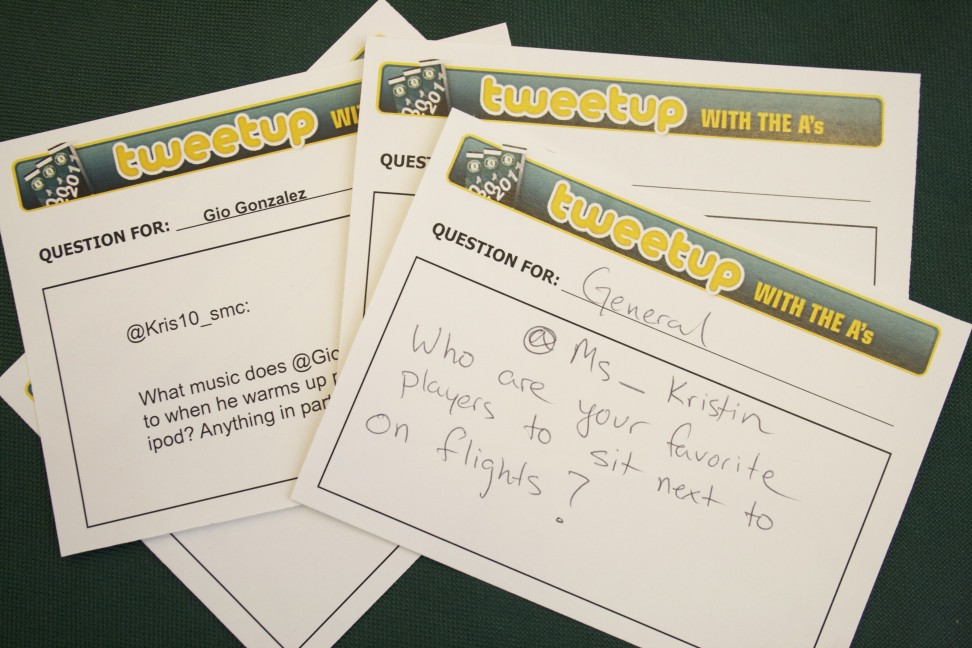 tweetup
QUESTION FOR: Gio Gonzalez
@Kris10_smc:
What music does @Gio
to when he warms up
ipod? Anything in
tweetup WITH THE A's
2011
tweetup WITH THE A's
QUESTION FOR: General
@Ms_Kristin
Who are your favorite
players to sit next to
on flights?